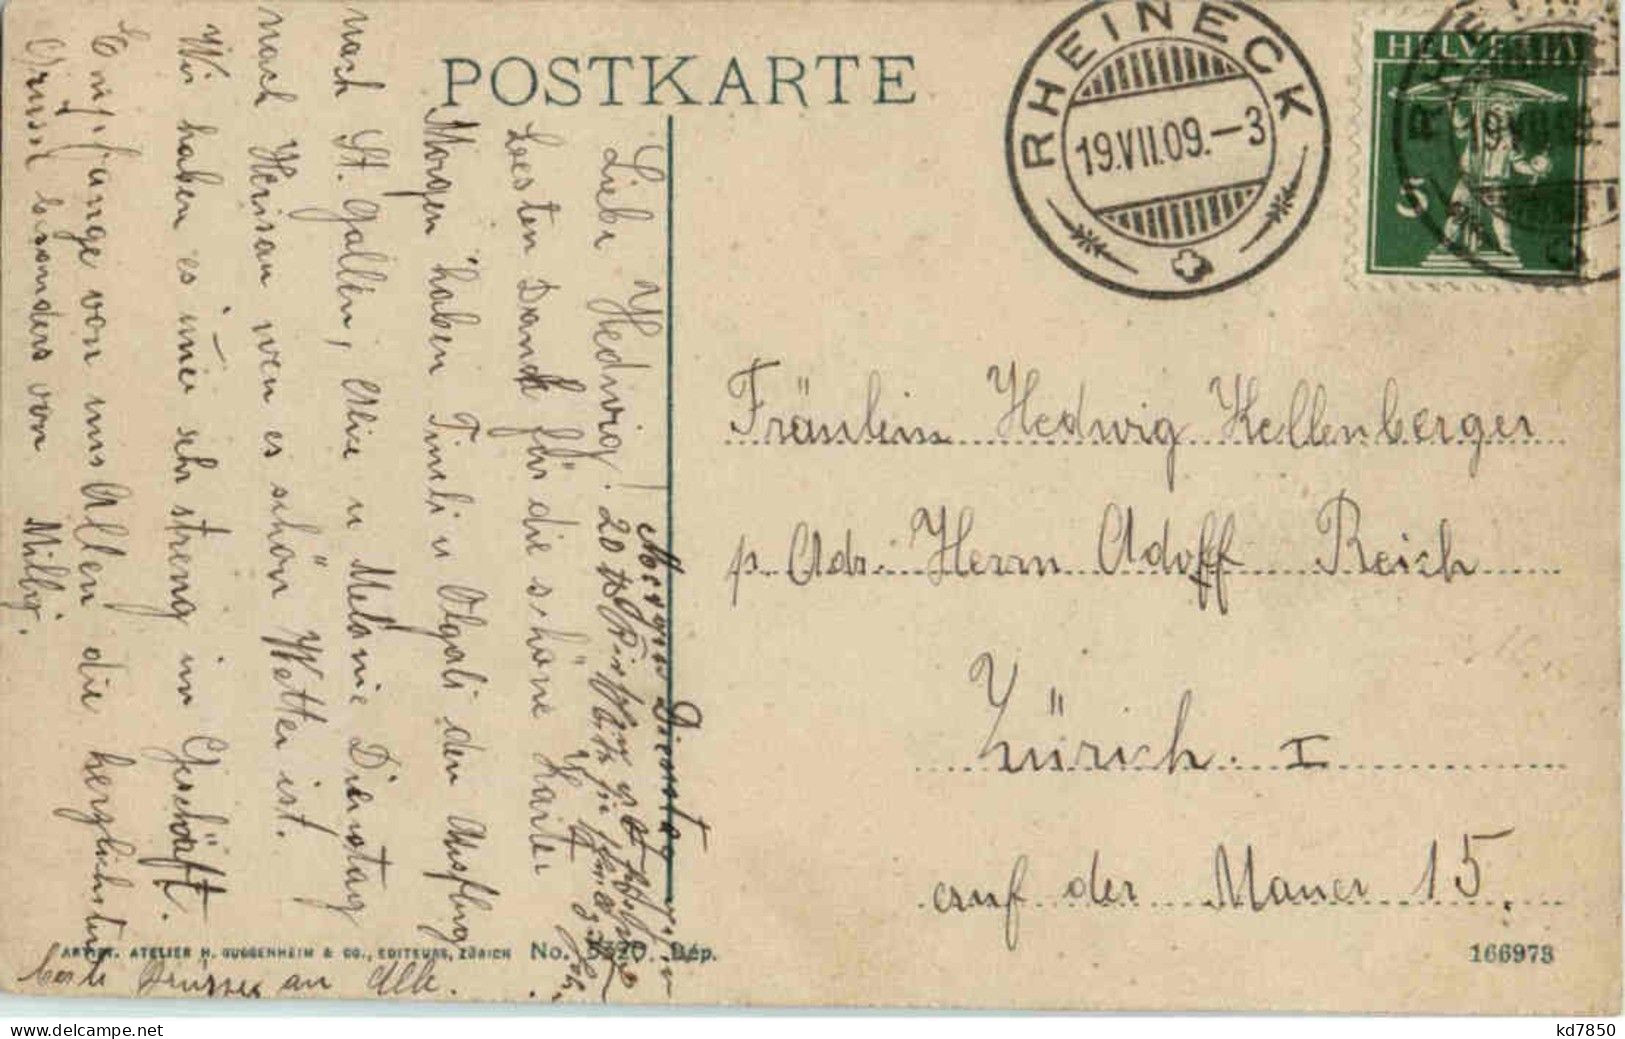 POSTKARTE
RHEINECK
19.VII.09.–3
HELVETIA
5
RHEINECK
19.VII.09
Fräulein Hedwig Kellenberger
p. Adr. Herrn Adolf Reich
Zürich. I
auf der Mauer 15.
Liebe Hedwig!
Besten Dank für die schöne Karte
Morgen haben Tineli u Olgali den Ausflug
nach St. Gallen, Alice u Melanie Dienstag
nach Herisau wen es schön Wetter ist.
Wir haben es imer sehr streng im Geschäft.
Empfange von uns Allen die herzlichsten
Grüsse besonders von Milly.
beste Grüsse an Alle.
Morgen Dienstag
ARTIST. ATELIER H. GUGGENHEIM & CO., EDITEURS, ZÜRICH No. 5320 Dép.
166973
kd7850